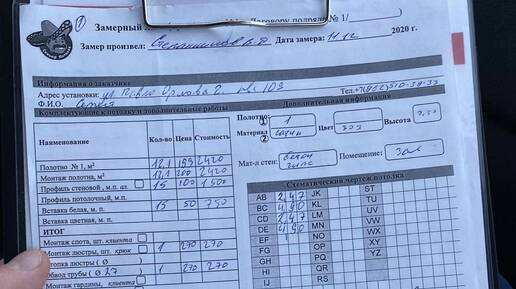 ①
Замерный
Договору подряда № 1/
Замер произвел:
Дата замера: 11.12 2020 г.
Информация о заказчике
Адрес установки: ул. Павла Орлова 2. кв. 103
Ф.И.О. Сергей
Комплектующие к потолку и дополнительные работы
Дополнительная информация
Наименование Кол-во Цена Стоимость
Полотно № 1, м² 12.1 2420
Монтаж полотна, м² 12.1 200 2420
Профиль стеновой, м.п. ал. 15 100 1500
Профиль потолочный, м.п.
Вставка белая, м.п. 15 50 750
Вставка цветная, м.п.
ИТОГ
Монтаж спота, шт. клиента
Монтаж люстры, шт. крюк 1 270 270
люстры (Ø )
Обвод трубы (Ø 27 ) 1 270 270
Монтаж гардины, клиента
Полотно: ① 1
②
Материал сатин Цвет 303 Высота
Мат-л стен: бетон гипс Помещение: Зал
Схематический чертеж потолка
AB 2,47 JK ST
BC 4,90 KL TU
CD 2,47 LM UV
DE 4,90 MN VW
EF NO WX
FG OP XY
GH PQ YZ
HI QR
IJ RS